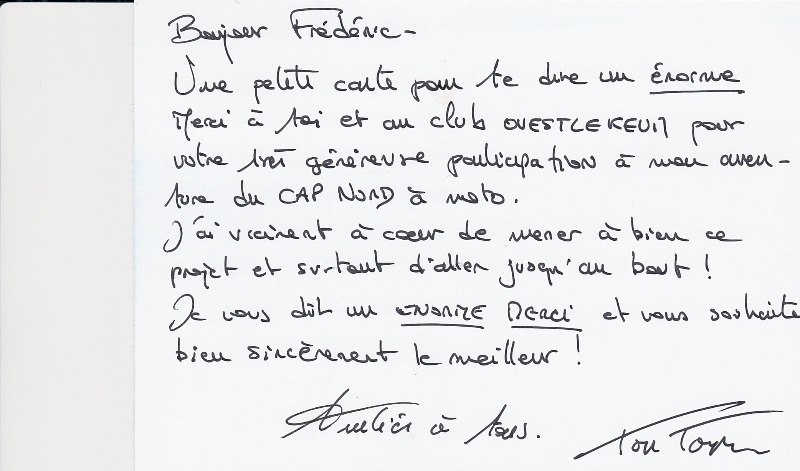 Bonjour Frédéric -
Une petite carte pour te dire un énorme
Merci à toi et au club OUESTLEKEUIN pour
votre très généreuse participation à mon aven-
ture du CAP NORD à moto.
J'ai vraiment à coeur de mener à bien ce
projet et surtout d'aller jusqu'au bout !
Je vous dit un ENORME MERCI et vous souhaite
bien sincèrement le meilleur !
Amitiés à tous.